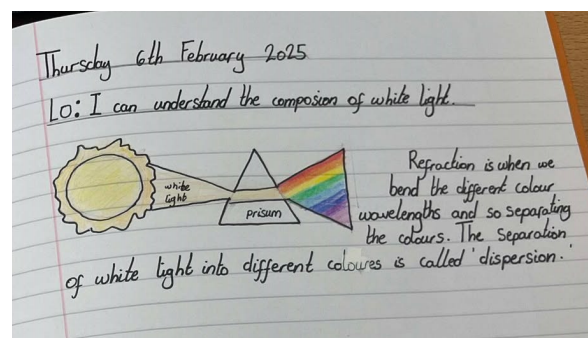 Thursday 6th February 2025
Lo: I can understand the composion of white light.
white
light
prisum
Refraction is when we
bend the different colour
wavelengths and so separating
the colours. The separation
of white light into different coloures is called 'dispersion.'